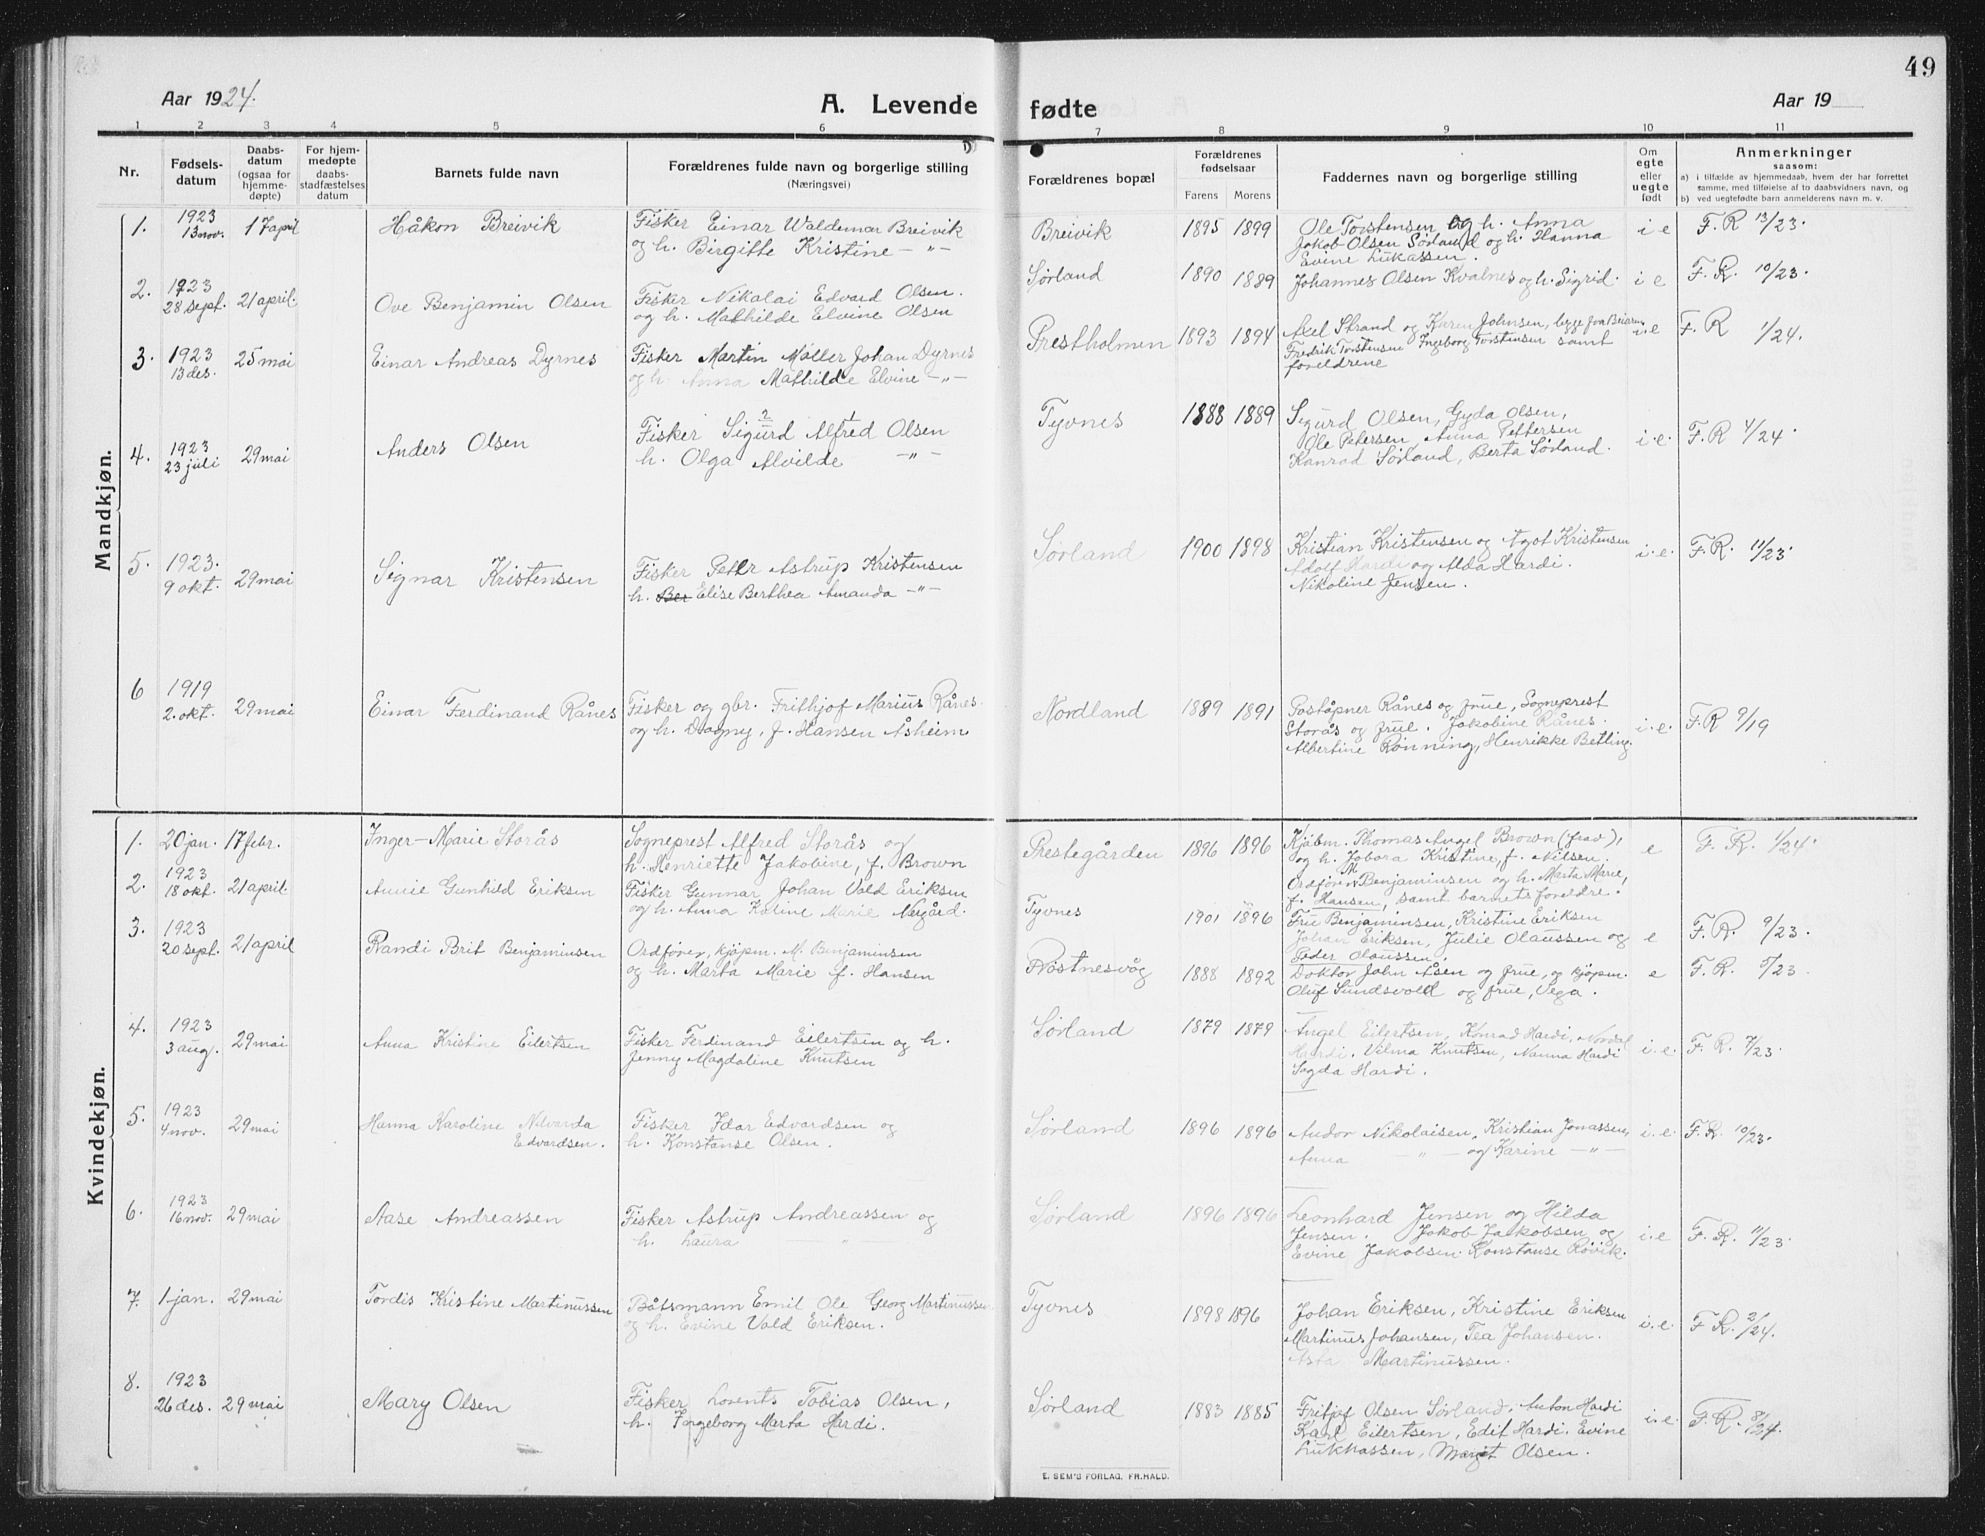 49
Aar 1924.
A. Levende fødte
Aar 19
1 2 3 4 5 6 7 8 9 10 11
Nr.
Fødsels-
datum
Daabs-
datum
(ogsaa for
hjemme-
døpte)
For hjem-
medøpte
daabs-
stadfæstelses
datum
Barnets fulde navn
Forældrenes fulde navn og borgerlige stilling
(Næringsvei)
Forældrenes bopæl
Forældrenes
fødselsaar
Farens Morens
Faddernes navn og borgerlige stilling
Om
egte
eller
uegte
født
Anmerkninger
saasom:
a) i tilfælde av hjemmedaab, hvem der har forrettet
samme, med tilføielse af to daabsvidners navn, og
b) ved uegtefødte barn anmelderens navn m. v.
Mandkjøn.
1. 1923 13 nov. 17 april Håkon Breivik
Fisker Einar Waldemar Breivik
og h. Birgitte Kristine -"-
Breivik 1895 1899
Ole Torstensen og h. Anna
Jakob Olsen Sørland og h. Hanna
Evine Lukassen.
i e F. R 13/23.
2. 1923 28 sept. 21 april. Ove Benjamin Olsen
Fisker Nikolai Edvard Olsen.
og h. Mathilde Elvine Olsen
Sørland 1890 1889
Johannes Olsen Kvalnes og h. Sigrid.
i e F. R. 10/23.
3. 1923 13 des. 25 mai Einar Andreas Dyrnes
Fisker Martin Møller Johan Dyrnes
og h. Anna Mathilde Elvine -"-
Prestholmen 1893 1894
Axel Strand og Karen Johnsen, begge fra Beiarn,
Fredrik Torstensen Ingeborg Torstensen samt
foreldrene
i e F. R 1/24.
4. 1923 23 juli 29 mai Anders Olsen
2 1
Fisker Sigurd Alfred Olsen
h. Olga Alvilde -"-
Tyvnes 1888 1889
Sigurd Olsen, Gyda Olsen,
Ole Petersen, Anna Pettersen
Konrad Sørland, Berta Sørland.
i. e. F. R 4/24.
5. 1923. 9 okt. 29 mai Sigmar Kristensen
Fisker Peter Astrup Kristensen
h. Ber Elise Berthea Amanda -"-
Sørland 1900 1898
Kristian Kristensen og Agot Kristensen
Adolf Hardi og Alda Hardi.
Nikoline Jensen.
i. e. F. R. 11/23.
6 1919 2. okt. 29 mai Einar Ferdinand Rånes
Fisker og gbr. Frithjof Marius Rånes.
og h. Dagny, f. Hansen Åsheim
Nordland 1889 1891
Poståpner Rånes og frue, Sogneprest
Storås og frue. Jakobine Rånes.
Albertine Rønning, Henrikke Betling.
i. e. F. R 9/19
Kvindekjøn.
1. 20 jan. 17 febr. Inger-Marie Storås
Sogneprest Alfred Storås og
h. Henriette Jakobine, f. Brown
Prestegården 1896 1896
Kjøbm. Thomas Angel Brown (frav),
og h. Jobora Kristine, f. Nilsen.
Ordfører M Benjaminsen og h. Marta Marie,
f. Hansen, samt barnets foreldre.
e F. R. 1/24.
2. 1923 18 okt. 21 april. Aurie Gunhild Eriksen
Fisker Gunnar Johan Vold Eriksen
og h. Anna Karine Marie Nergård.
Tyvnes 1901 1896
Fru Benjaminsen, Kristine Eriksen
Johan Eriksen, Julie Olaussen og
Peder Olaussen.
e F. R. 9/23.
3. 1923 20 sept. 21 april Randi Brit Benjaminsen
Ordfører, kjøpm. M. Benjaminsen
og h. Marta Marie f. Hansen
Røstnesvåg 1888 1892
Doktor John Åsen og frue, og kjøpm.
Oluf Sundsvold og frue, Vega.
e F. R. 9/23.
4. 1923 3 aug. 29 mai Anna Kristine Eilertsen
Fisker Ferdinand Eilertsen og h.
Jenny Magdaline Knutsen
Sørland 1879 1879
Angel Eilertsen, Konrad Hardi, Nordal
Hardi. Vilma Knutsen, Nanna Hardi
Sogda Hardi.
i. e. F. R. 7/23.
5. 1923 4 nov. 29 mai Hanna Karoline Nilvarda
Edvardsen.
Fisker Idar Edvardsen og
h. Konstanse Olsen.
Sørland 1896 1896
Andor Nikolaisen, Kristian Jonassen,
Anna -"- og Karine -"-
i. e. F. R. 10/23.
6. 1923 16 nov. 29 mai Aase Andreassen
Fisker Astrup Andreassen og
h. Laura "
Sørland 1896 1896
Leonhard Jensen og Hilda
Jensen. Jakob Jakobsen og
Evine Jakobsen. Konstanse Røvik.
i. e F. R. 11/23.
7. 1 jan. 29 mai Tordis Kristine Martinussen
Båtsmann Emil Ole Georg Martinussen
og h. Evine Vold Eriksen.
Tyvnes 1898 1896
Johan Eriksen, Kristine Eriksen
Martinus Johansen, Tea Johansen.
Asta Martinussen.
i. e. F. R. 2/24.
8. 1923 26 des. 29 mai Mary Olsen
Fisker Lorents Tobias Olsen,
h. Ingeborg Marta Hardi.
Sørland 1883 1885
Fritjof Olsen Sørland, Anton Hardi
Karl Eilertsen, Edit Hardi. Evine
Lukkassen, Margit Olsen.
i. e. F. R. 8/24.
E. SEM'S FORLAG, FR.HALD.